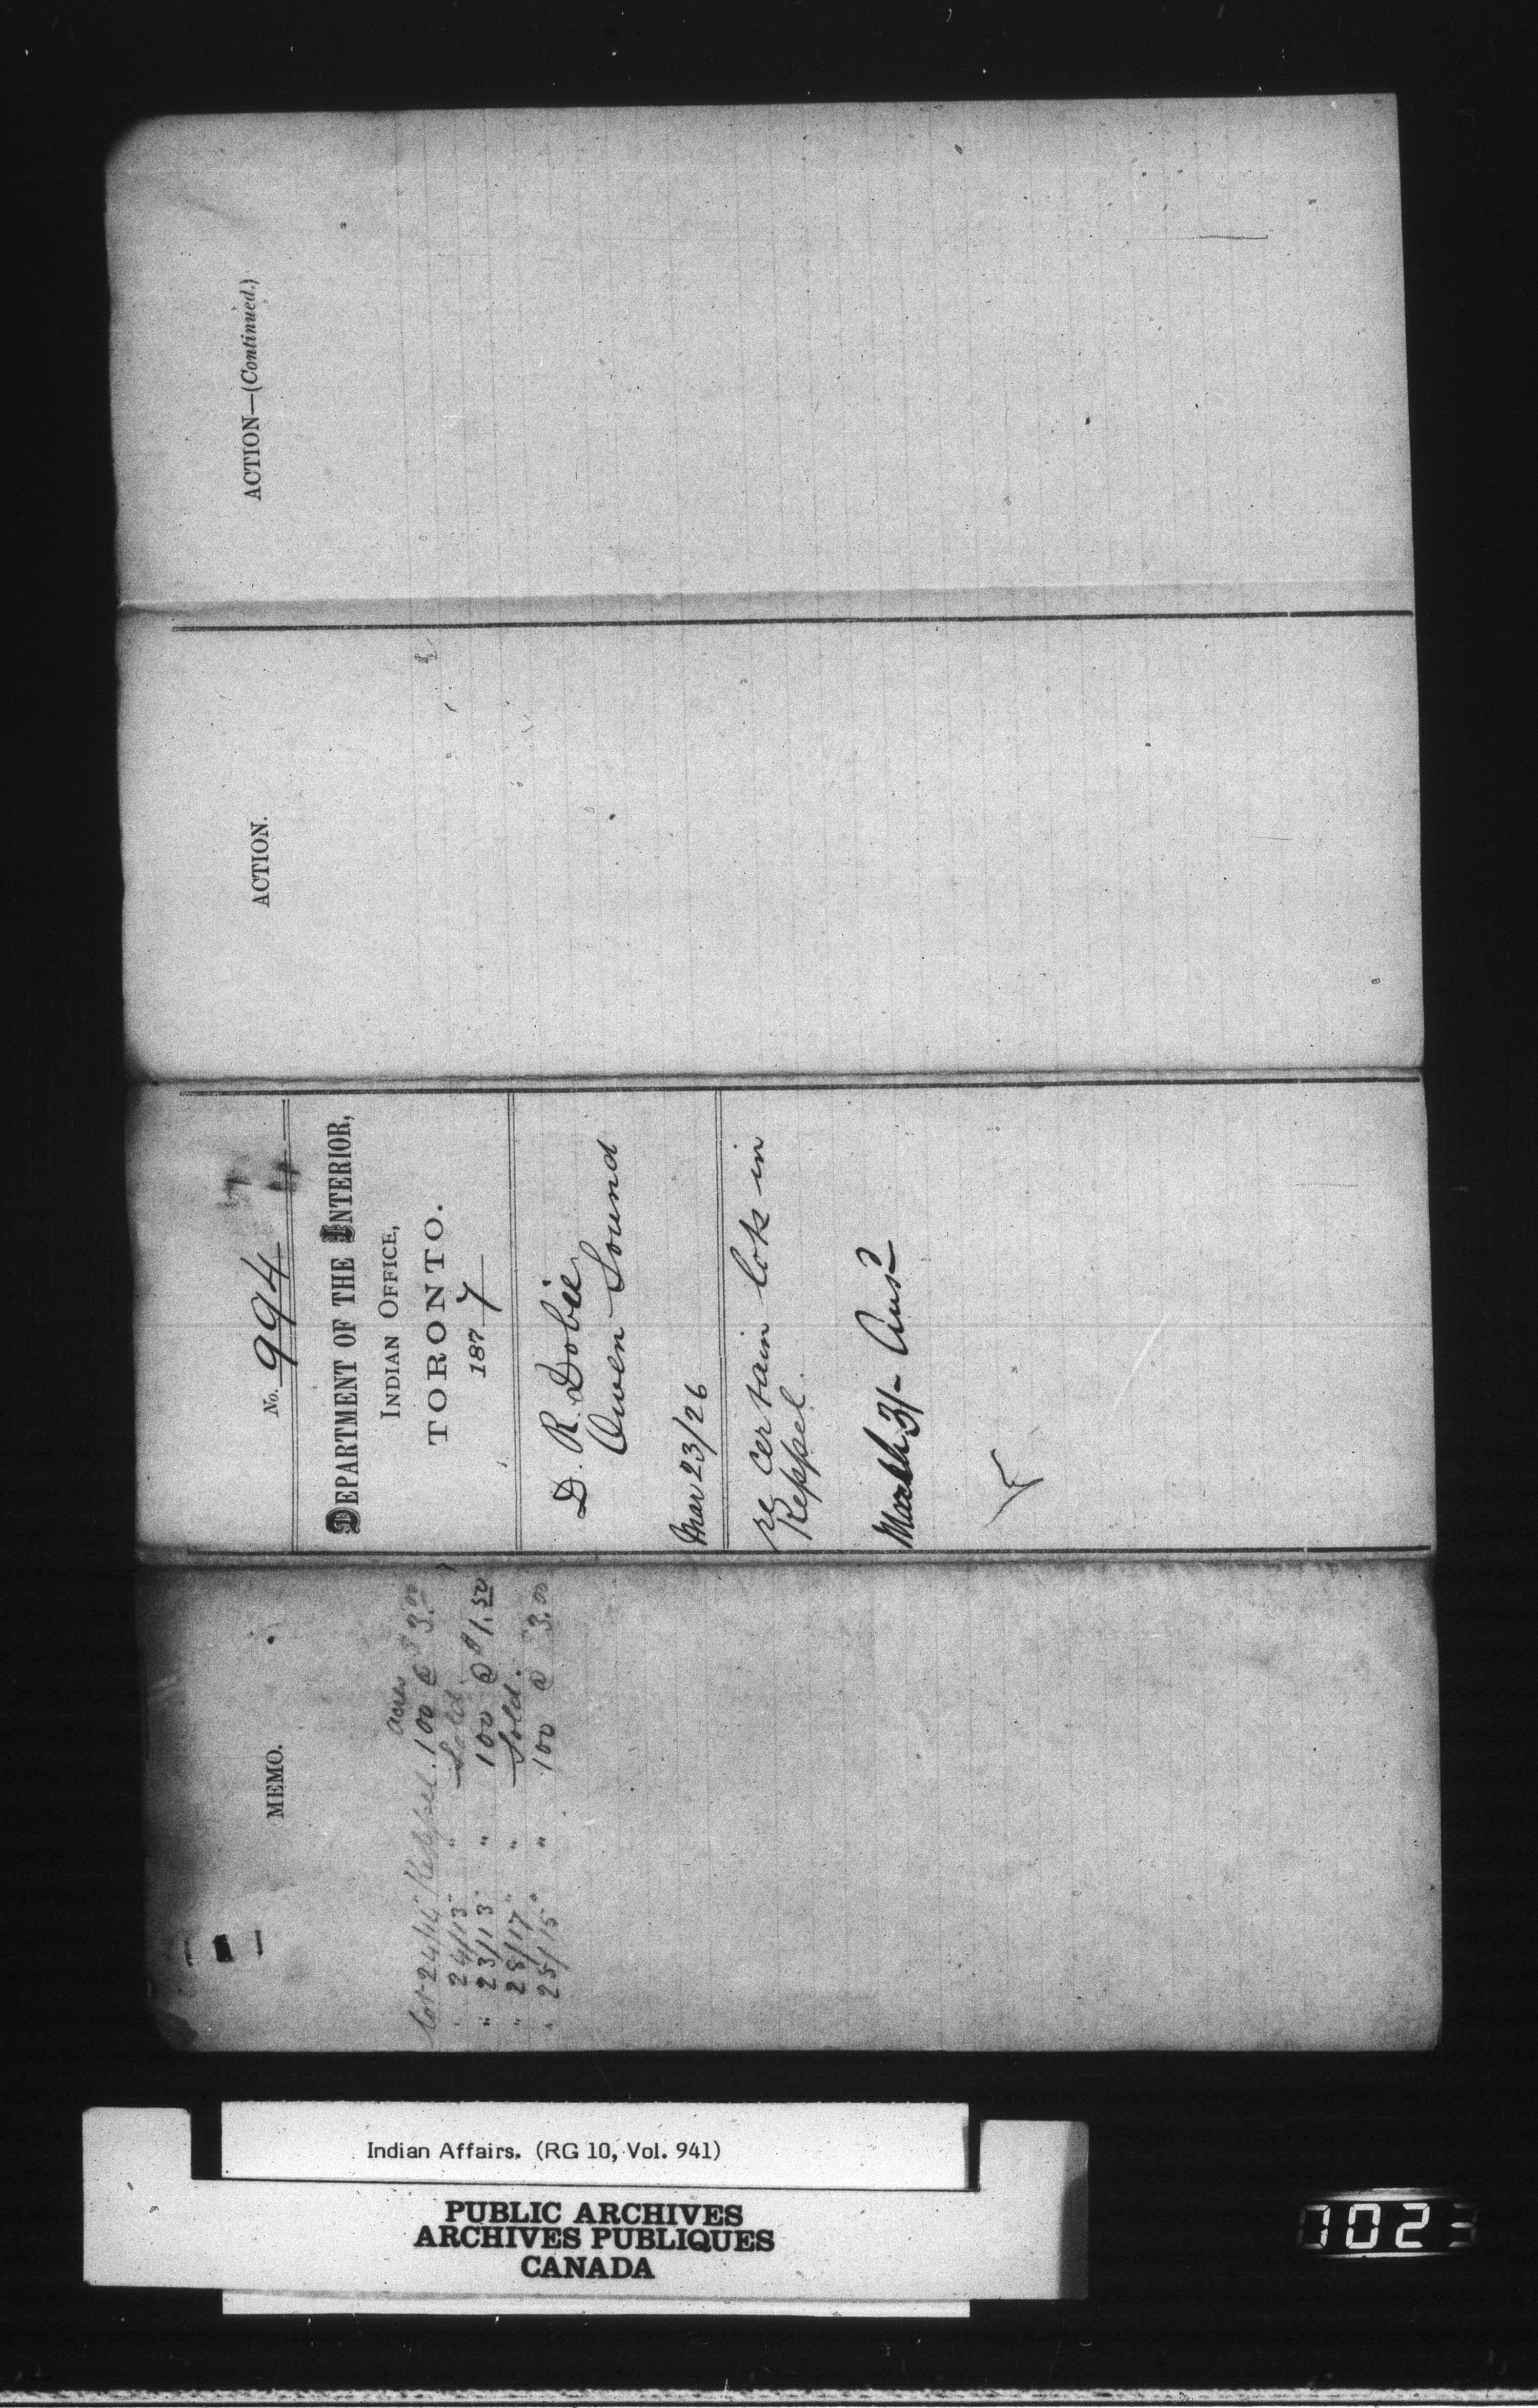 MEMO.
acres
Lot 24/14 Keppel. 100 @ $3.00
" 24/13 " " Sold.
" 23/13 " " 100 @ $1.50
" 28/17 " " Sold.
" 25/15 " " 100 @ 3.00
No. 994
DEPARTMENT OF THE INTERIOR,
INDIAN OFFICE,
TORONTO.
1877
D. R. Dobie
Owen Sound
Mar 23/26
re certain lots in
Keppel.
March 31- Ansd
ACTION.
ACTION—(Continued.)
Indian Affairs. (RG 10, Vol. 941)
PUBLIC ARCHIVES
ARCHIVES PUBLIQUES
CANADA
0023